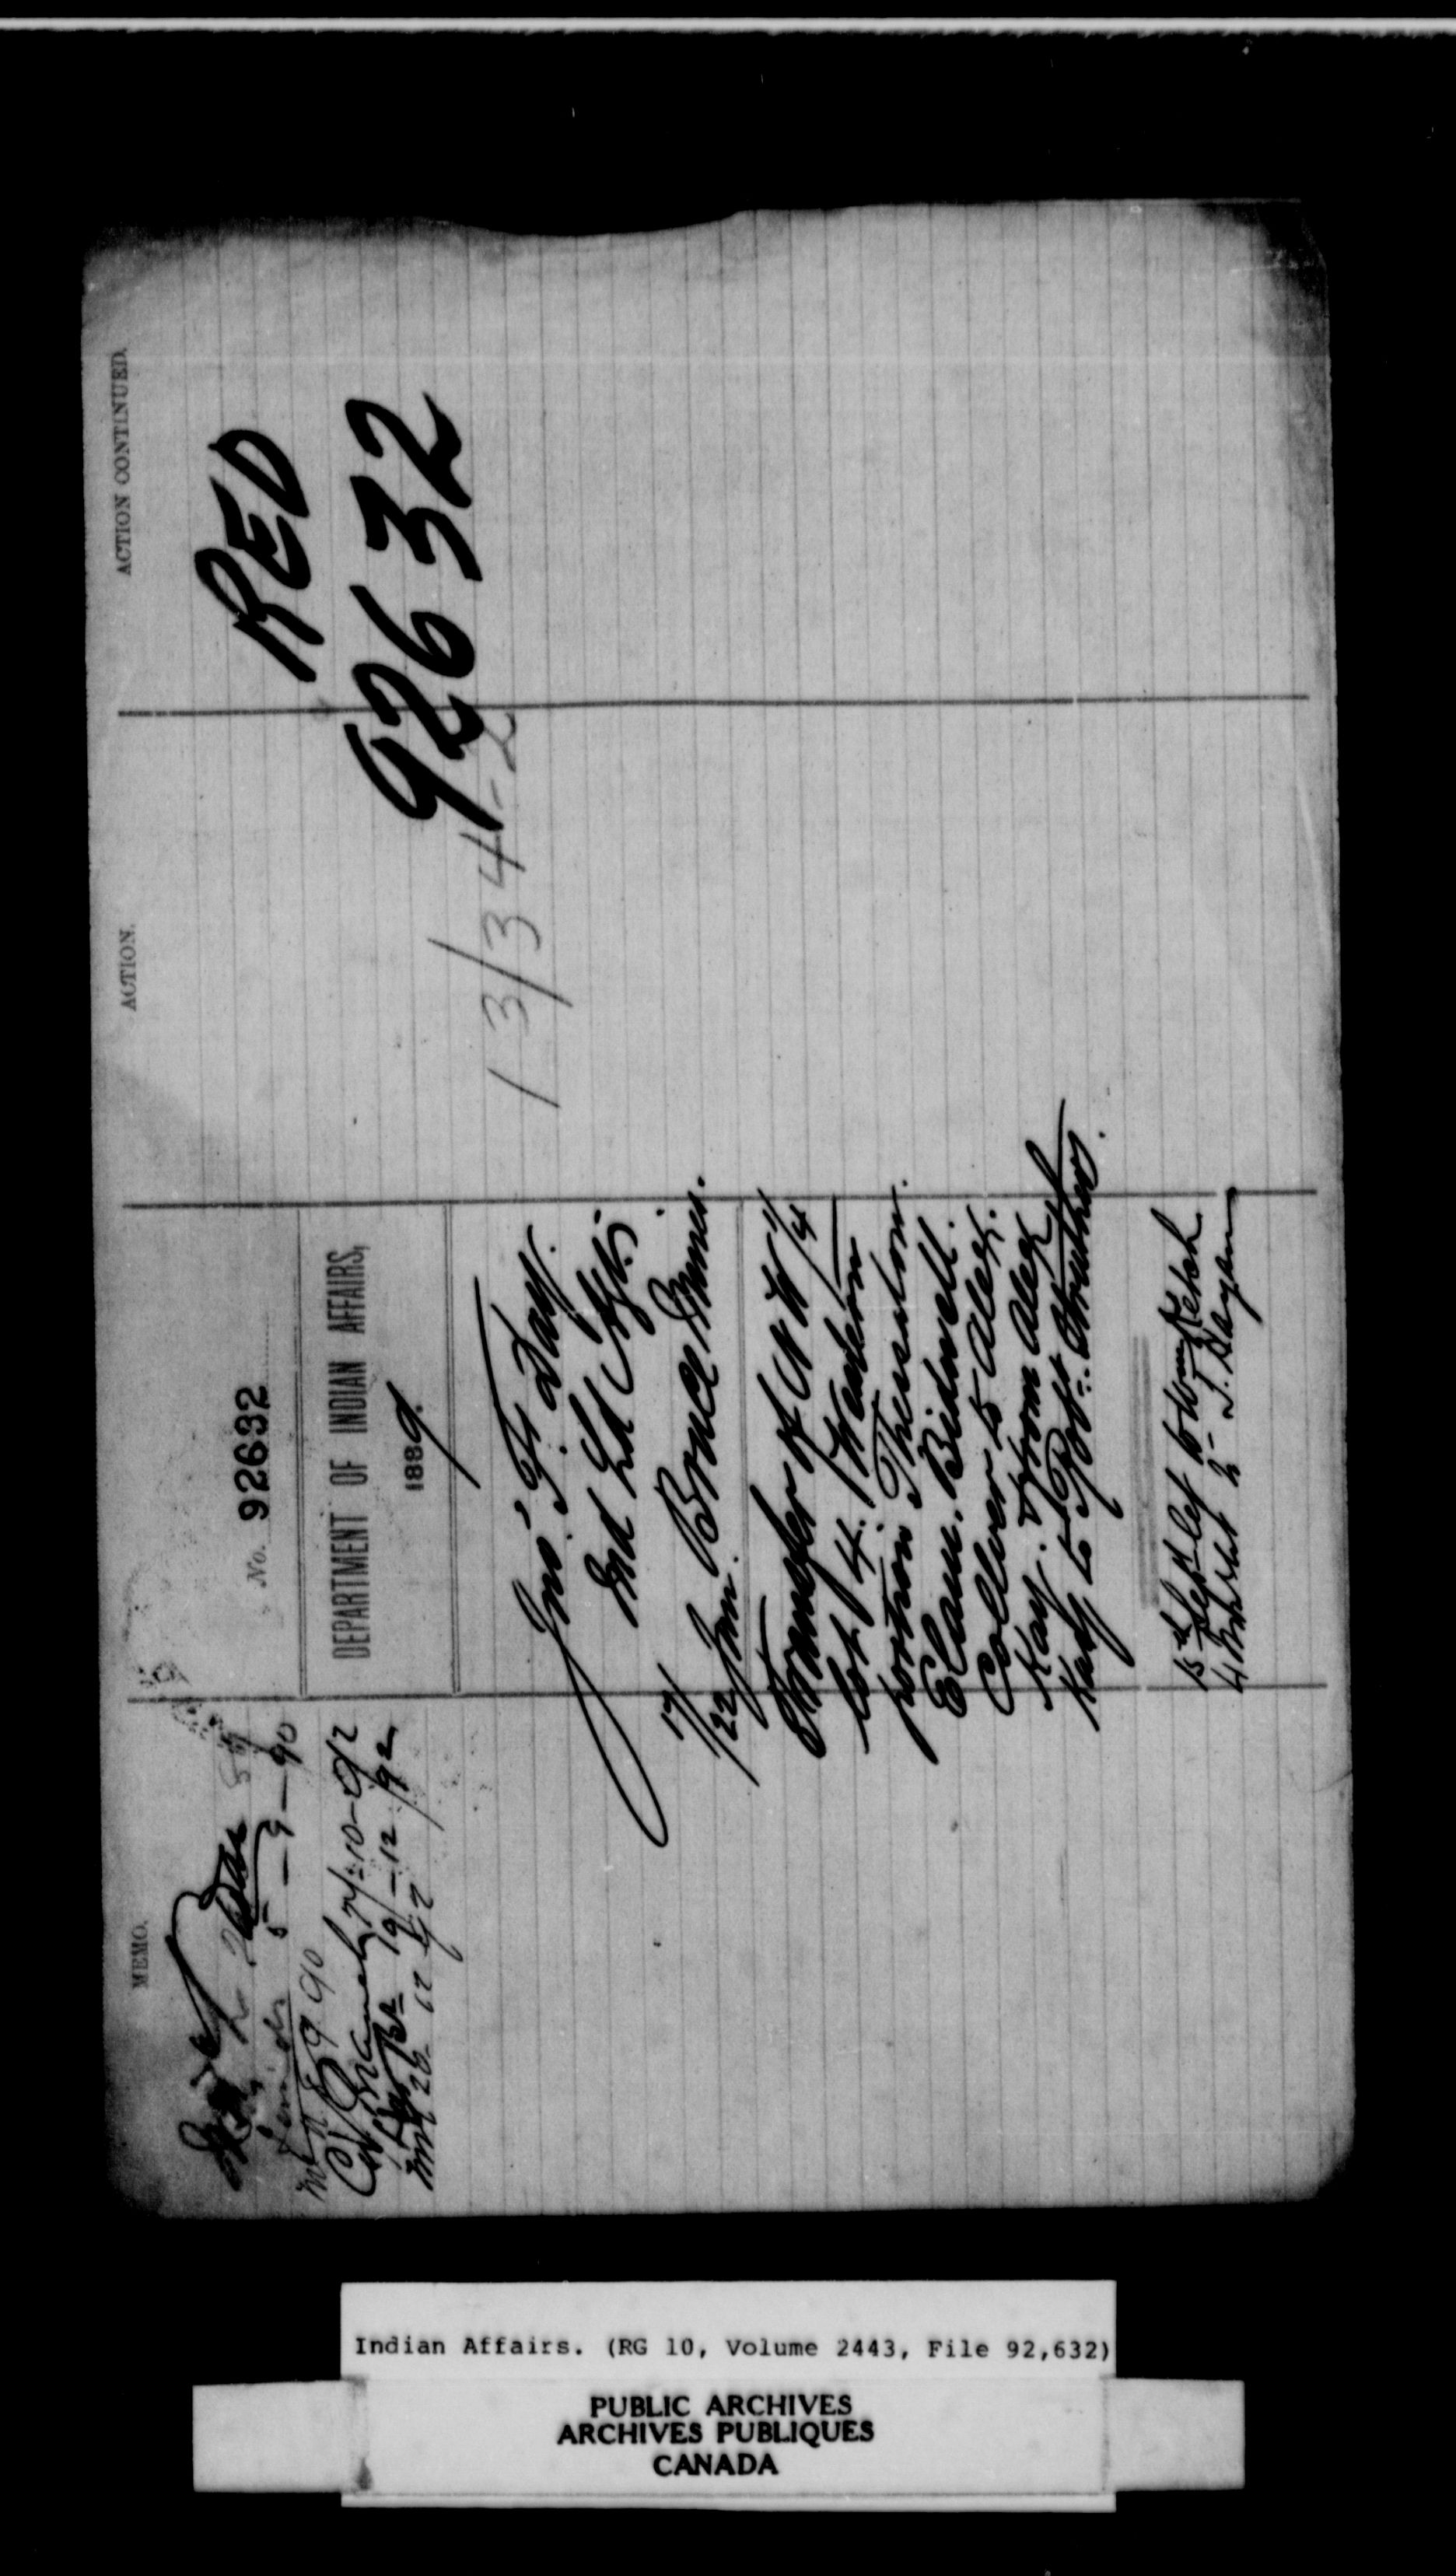 MEMO.
5-9-90
7/-10-92
19/-12/92
No. 92632
DEPARTMENT OF INDIAN AFFAIRS,
1889
Jno. F. Day.
Ind Ld Agt.
17/22 Jan. Bruce Mines.
Transfer of N W 1/4
lot 4. Western
portion Thessalon.
Elam. Bidwell.
Collver to Alex.
Kay. & from Alex
Kay to Robt. Struthers.
ACTION.
13/34-2
ACTION CONTINUED.
RED
92632
Indian Affairs. (RG 10, Volume 2443, File 92,632)
PUBLIC ARCHIVES
ARCHIVES PUBLIQUES
CANADA